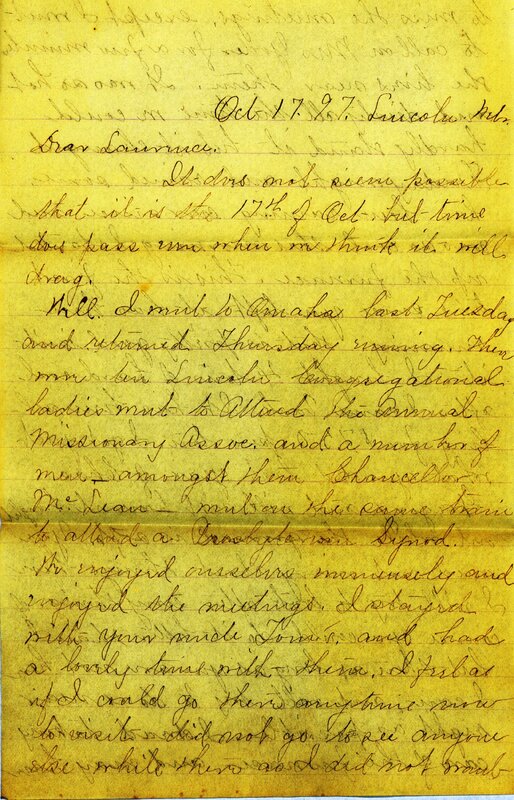 Oct 17. 97. Lincoln. Neb.
Dear Laurence.
It does not seem possible
that it is the 17th of Oct. but time
does pass even when we think it will
drag.
Well. I went to Omaha last Tuesday
and returned Thursday evening. There
were ten Lincoln Congregational
ladies went to attend the annual
Missionary Assoc. and a number of
men - amongst them Chancellor
McLean - went on the same train
to attend a Presbyterian Synod.
We enjoyed ourselves immensely and
enjoyed the meetings. I stayed
with your uncle Tom's, and had
a lovely time with them. I feel as
if I could go there anytime now
to visit. did not go to see anyone
else while there as I did not want